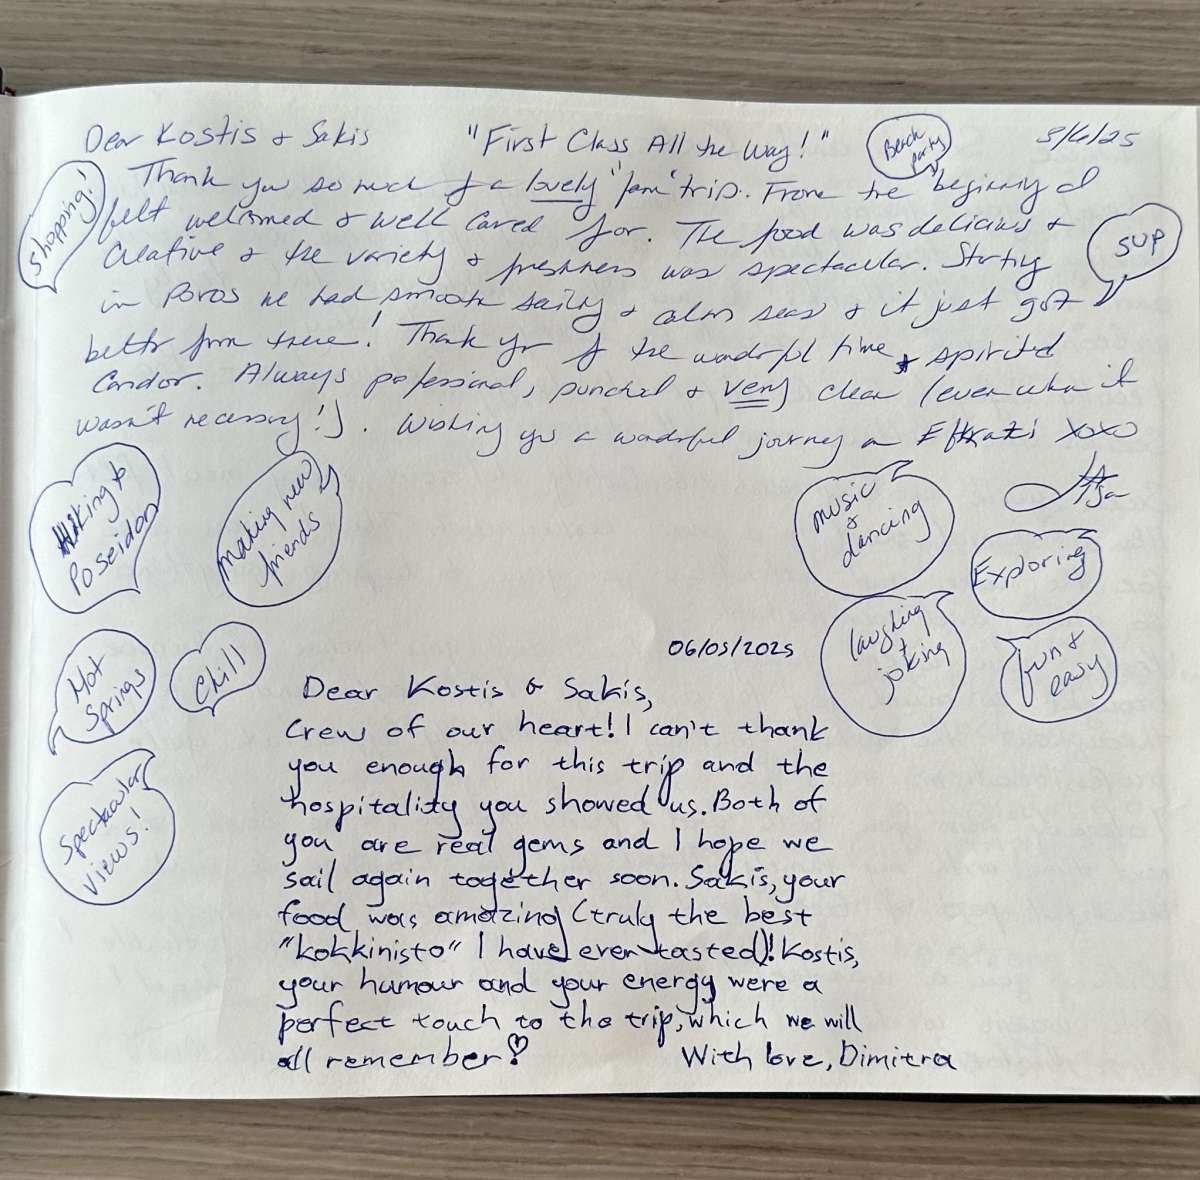 Dear Kostis & Sakis
"First Class All the Way!"
Beach
party
5/6/25
Thank you so much for a lovely "fam" trip. From the beginning I
felt welcomed & well cared for. The food was delicious &
Creative & the variety & freshness was spectacular. Starting
in Poros we had smooth sailing & calm seas & it just got
better from there! Thank you for the wonderful time & spirited
Candor. Always professional, punctual & very clean (even when it
wasn't necessary!). Wishing you a wonderful journey on Eftrazis XOXO
Shopping!
SUP
Hiking to
Poseidon
making new
friends
music
&
dancing
Exploring
laughing
+
joking
fun &
easy
Hot
Springs
Chill
Spectacular
views!
06/05/2025
Dear Kostis & Sakis,
Crew of our heart! I can't thank
you enough for this trip and the
hospitality you showed us. Both of
you are real gems and I hope we
sail again together soon. Sakis, your
food was amazing (truly the best
"kokkinisto" I have ever tasted)! Kostis,
your humour and your energy were a
perfect touch to the trip, which we will
all remember!
With love, Dimitra